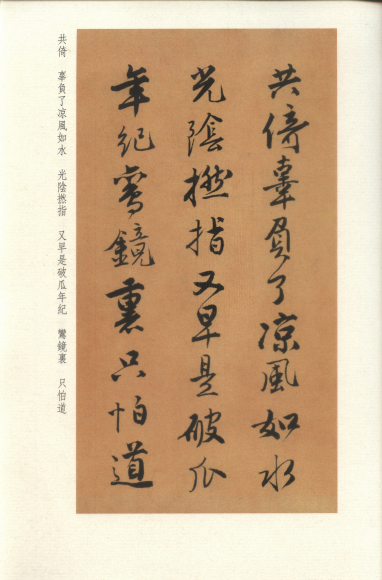 共倚辜負了凉風如水
光陰撚指又早是破瓜
年紀鸞鏡裏只怕道
共倚　辜負了凉風如水　光陰撚指　又早是破瓜年紀　鸞鏡裏　只怕道